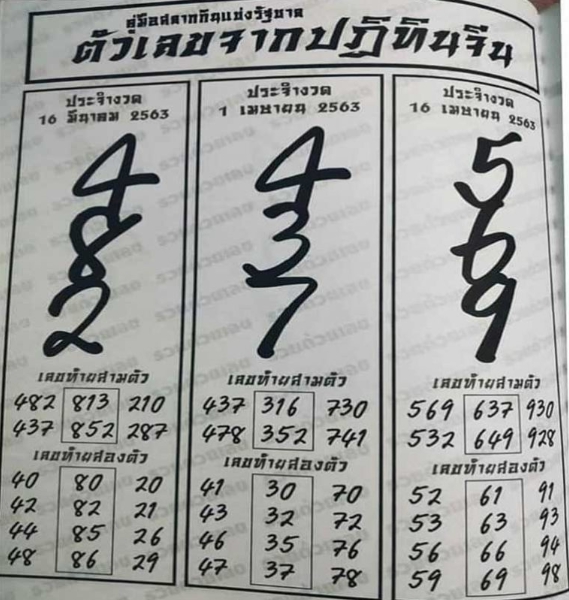 คู่มือสลากกินแบ่งรัฐบาล
ตัวเลขจากปฏิทินจีน
ประจำงวด
16 มีนาคม 2563
4
8
2
เลขท้ายสามตัว
482 813 210
437 852 287
เลขท้ายสองตัว
40 80 20
42 82 21
44 85 26
48 86 29
ประจำงวด
1 เมษายน 2563
4
3
7
เลขท้ายสามตัว
437 316 730
478 352 741
เลขท้ายสองตัว
41 30 70
43 32 72
46 35 76
47 37 78
ประจำงวด
16 เมษายน 2563
5
6
9
เลขท้ายสามตัว
569 637 930
532 649 928
เลขท้ายสองตัว
52 61 91
53 63 93
56 66 94
59 69 98